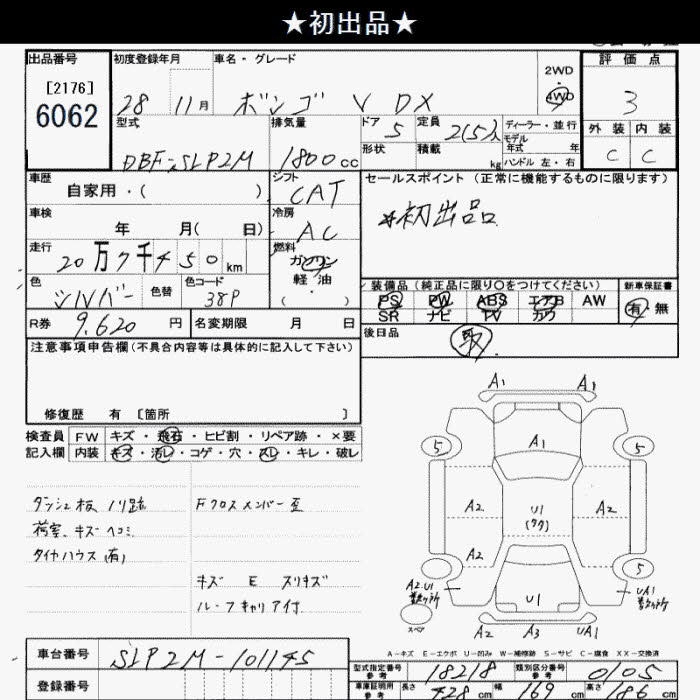 ★初出品★
出品番号 初度登録年月 車名・グレード 2WD 評価点
[2176] 4WD
6062 28 11月 ボンゴ V DX 3
型式 排気量 ドア 定員 ディーラー・並行 外装 内装
5 2(5)人 モデル年式 年
DBF-SLP2M 1800cc 形状 積載 kg ハンドル 左・右 C C
車歴 シフト セールスポイント (正常に機能するものに限ります)
自家用・( ) CAT
車検 冷房 初出品
年 月( 日) AC
走行 燃料
20万7千450km ガソリン
軽油
色 色替 色コード ( ) 装備品(純正品に限り〇をつけてください) 新車保証書
シルバー 38P PS PW ABS エアB AW 有・無
R券 9,620円 名変期限 月 日 SR ナビ TV カワ
後日品
注意事項申告欄(不具合内容等は具体的に記入して下さい) 取
修復歴 有 [箇所 ]
検査員 FW キズ・飛石・ヒビ割・リペア跡・×要
記入欄 内装 キズ・汚レ・コゲ・穴・スレ・キレ・破レ
A1 A1
A1
5 5
ダッシュ板 ノリ跡 Fクロスメンバー歪
A2 U1 A2
荷室 キズ ヘコミ
タイヤハウス(有)
A2
キズ E スリキズ 5
ルーフキャリア付
A2.U1 U1 UA1
スペア
A2 A3 UA1
A-キズ E-エクボ U-凹み W-補修跡 S-サビ C-腐食 XX-交換済
車台番号 SLP2M-101145
型式指定番号 参考 18218 類別区分番号 参考 0105
登録番号 車庫証明用 参考 長さ 428cm 幅 169cm 高さ 186cm